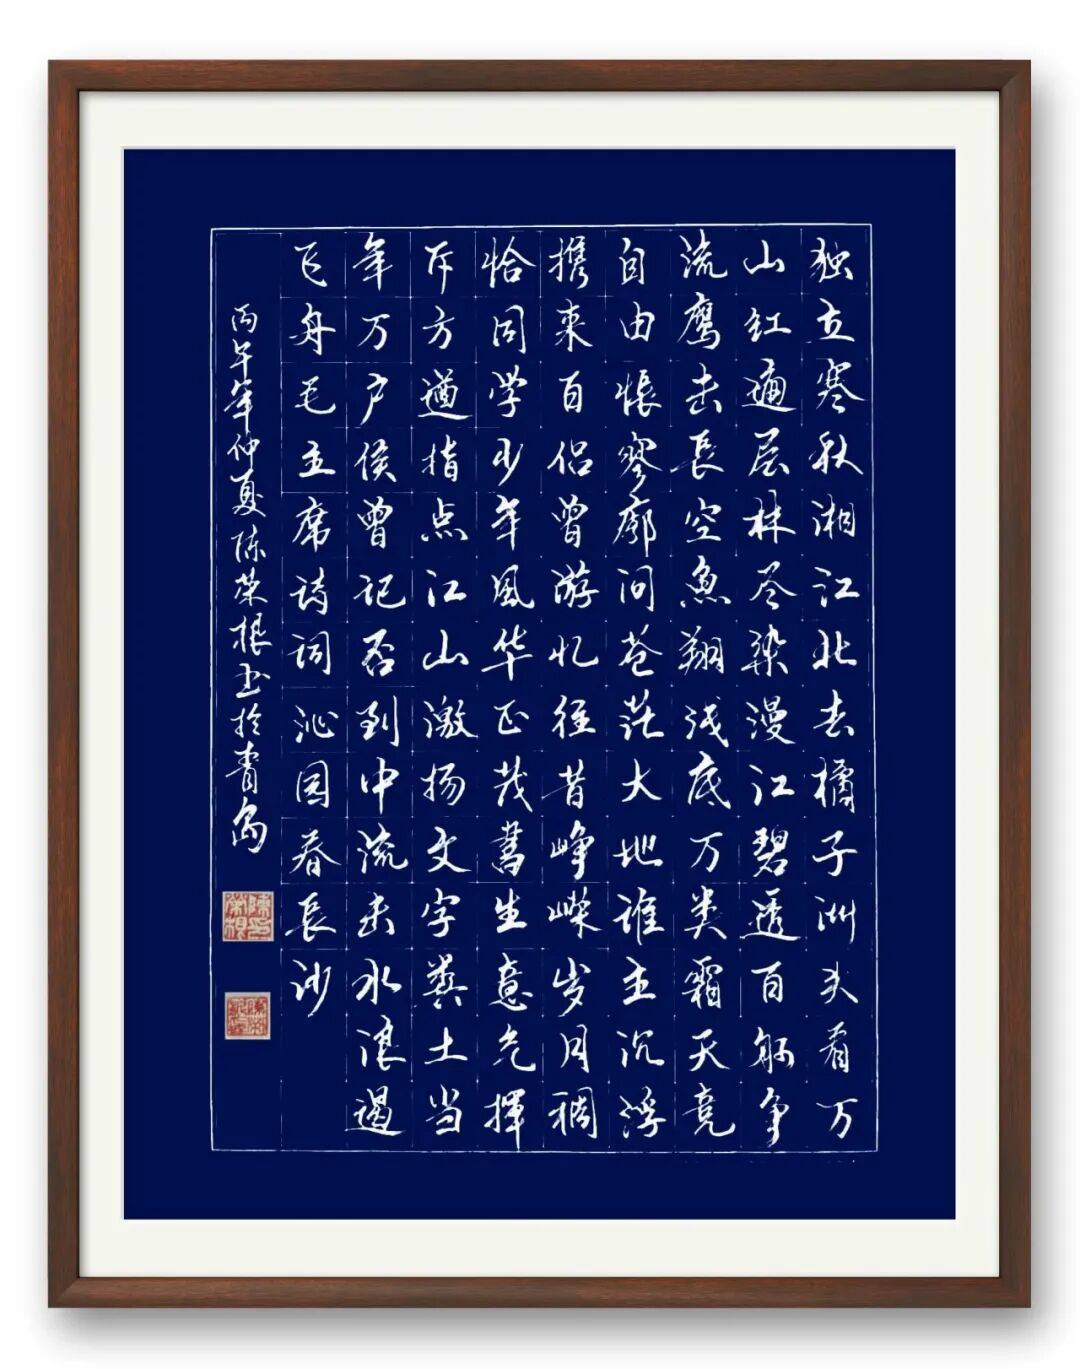 独立寒秋湘江北去橘子洲头看万
山红遍层林尽染漫江碧透百舸争
流鹰击长空鱼翔浅底万类霜天竞
自由怅寥廓问苍茫大地谁主沉浮
携来百侣曾游忆往昔峥嵘岁月稠
恰同学少年风华正茂书生意气挥
斥方遒指点江山激扬文字粪土当
年万户侯曾记否到中流击水浪遏
飞舟毛主席诗词沁园春长沙
丙午年仲夏陈荣根书于青岛